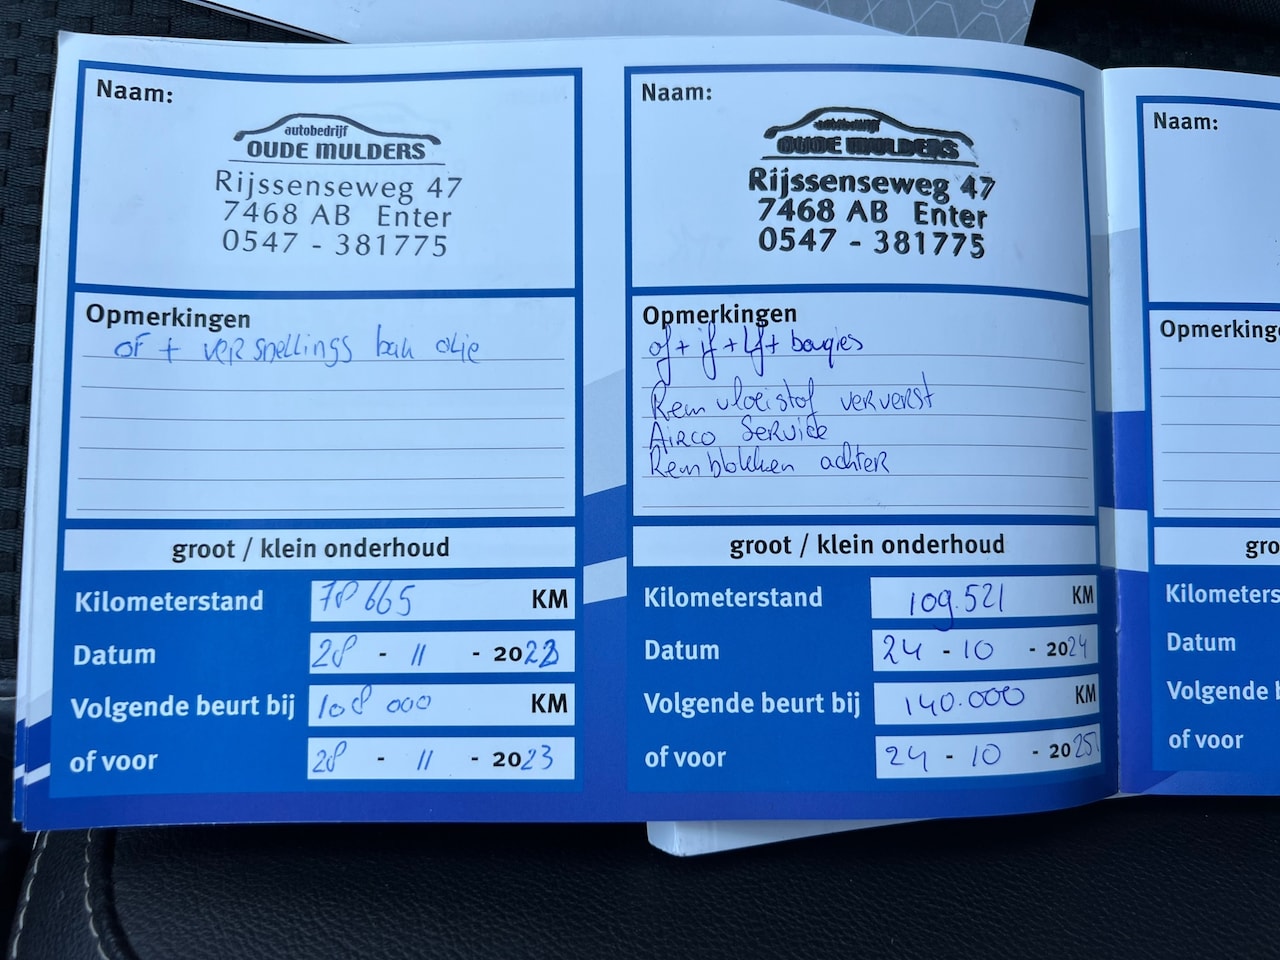 Naam:
autobedrijf
OUDE MULDERS
Rijssenseweg 47
7468 AB Enter
0547 - 381775
Opmerkingen
of + versnellings bak olie
groot / klein onderhoud
Kilometerstand 78 665 KM
Datum 28 - 11 - 2022
Volgende beurt bij 108 000 KM
of voor 28 - 11 - 2023
Naam:
autobedrijf
OUDE MULDERS
Rijssenseweg 47
7468 AB Enter
0547 - 381775
Opmerkingen
of + if + lf + bougies
Remvloeistof ververst
Airco Service
Remblokken achter
groot / klein onderhoud
Kilometerstand 109.521 KM
Datum 24 - 10 - 2024
Volgende beurt bij 140.000 KM
of voor 24 - 10 - 2025
Naam:
Opmerkinge
gro
Kilometers
Datum
Volgende b
of voor